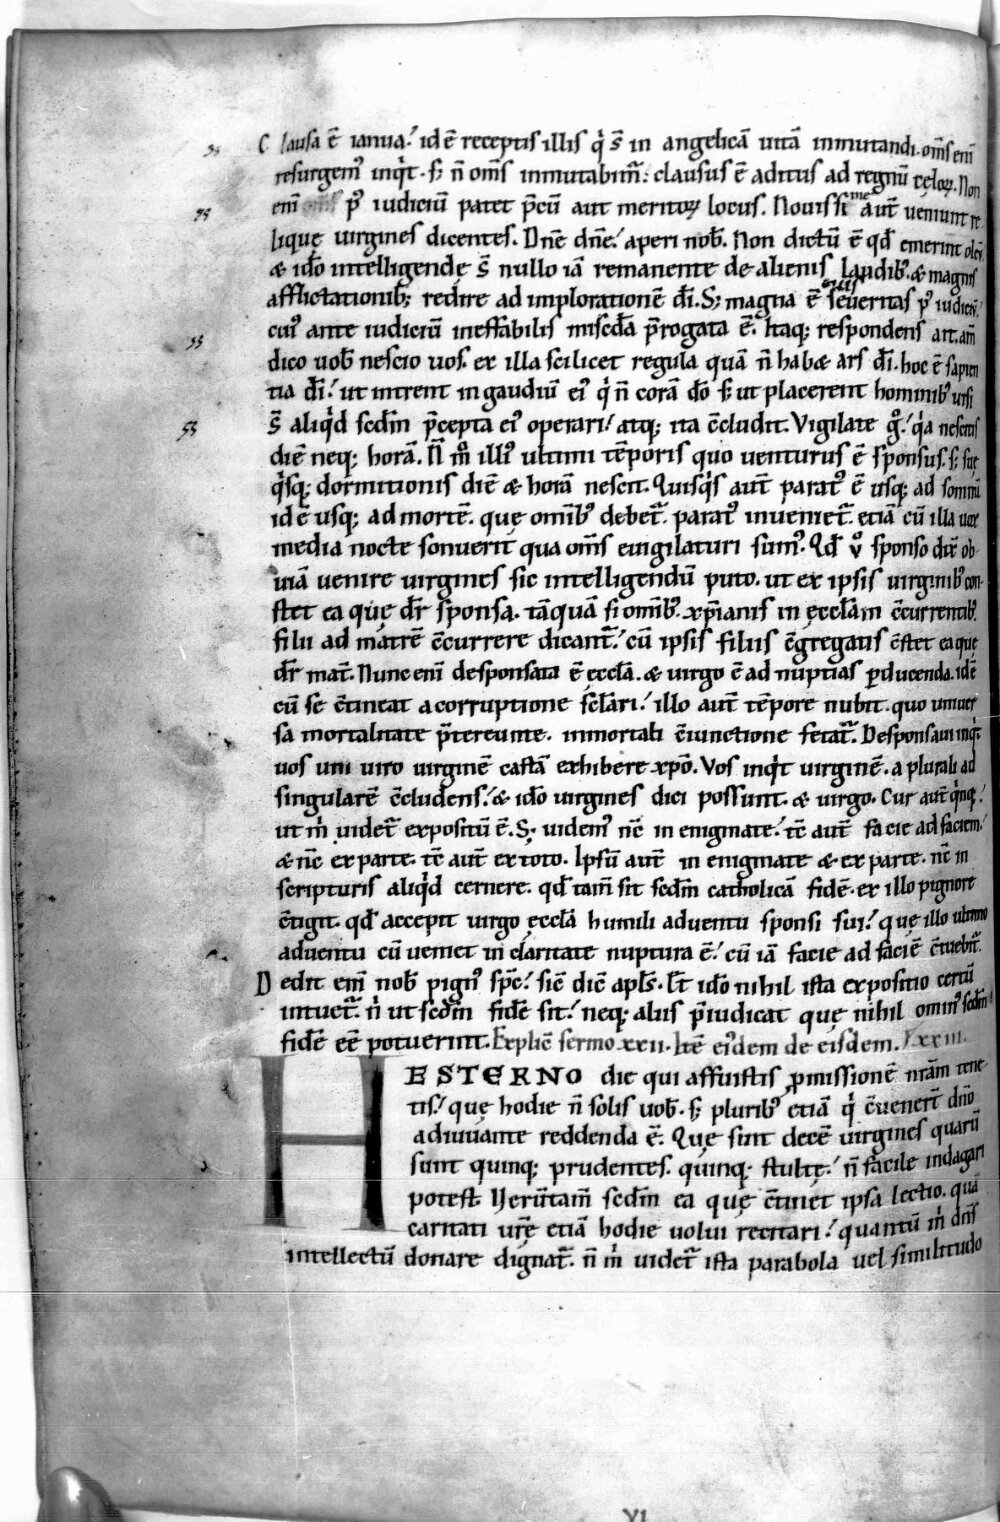 Clausa ē ianua.' id ē receptis illis q̇ s̄ in angelicā uitā inmutandi. om̄s eni̅
resurgem᷒ inq̇t. s; n̄ om̄s inmutabim̄. clausus ē aditus ad regnū cęloꝝ. Non
eni̅ p᷒ iudiciū patet p̄cū aut meritoꝝ locus. Nouissime aut̄ ueniunt re
lique uirgines dicentes. Dn̄e dn̄e.' aperi nob̄. Non dictū ē qd̄ emerint oleū.
& id̄o intelligendę s̄ nullo iā remanente de alienis laudib᷒. & magnis
afflictationib; redire ad implorationē dī. S; magna ē seueritas p᷒ iudiciū.'
cui᷒ ante iudiciū ineffabilis mis̄cd̄a p̄rogata ē. Itaq; respondens ait. am̄
dico uob̄ nescio uos. ex illa scilicet regula quā n̄ hab& ars dī. hoc ē sapien
tia dī.' ut intrent in gaudiū ei᷒ q̇ n̄ corā d̄o s; ut placerent hominib᷒ uisi
s̄ aliq̇d sc̄dm p̄cepta ei᷒ operari.' atq; ita c̄cludit. Vigilate g̊.' q̇a nescitis
diē neq; horā. N̄ m̊ illi᷒ ultimi tēporis quo uenturus ē sponsus. s; suę
q̇sq; dormitionis diē & horā nescit. Quisq̇s aut̄ parat᷒ ē usq; ad somnū
id ē usq; ad mortē. que omib᷒ debet̄. parat᷒ inueniet̄. etiā cū illa uox
media nocte sonuerit qua om̄s euigilaturi sum᷒. Qd̄ v̊ sponso dūr ob
uiā uenire uirgines sic intelligendū puto. ut ex ipsis uirginib᷒ con
stet ea quę dr̄ sponsa. tāquā si omib᷒ xp̄ianis in eccl̄am c̄currentib᷒
filii ad matrē c̄currere dicant̄.' cū ipsis filiis c̄gregatis c̄stet ea quę
dr̄ mat̄. Nunc eni̅ desponsata ē ęccl̄a. & uirgo ē ad nuptias ꝑducenda. id ē
cū se c̄tineat a corruptione scl̄ari.' illo aut̄ tēpore nubit. quo uniuer
sa mortalitate p̄tereunte. inmortali c̄iunctione fetat̄. Desponsaui inq̇t
uos uni uiro uirginē castā exhibere xp̄o. Vos inq̇t uirginē. a plurali ad
singularē c̄cludens.' & id̄o uirgines dici possunt. & uirgo. Cur aut̄ q̇nq;.'
ut ṁ uidet̄ expositū ē. S; uidem᷒ n̄c in enigmate.' t̄c aut̄ facie ad faciem.'
& n̄c ex parte. t̄c aut̄ ex toto. Ipsū aut̄ in enigmate & ex parte. n̄c in
scripturis aliq̇d cernere. qd̄ tam̄ sit sc̄dm catholicā fidē. ex illo pignore
c̄tigit. qd̄ accepit uirgo ęccl̄a humili aduentu sponsi sui.' quę illo ultimo
aduentu cū ueniet in claritate nuptura ē.' cū iā facie ad faciē c̄tuebit̄.
Dedit eni̅ nob̄ pign᷒ sp̄c.' sic̄ dic̄ apl̄s. Et id̄o nihil ista expositio certū
intuet̄. n̊ ut sc̄dm fidē sit.' neq; aliis p̄iudicat quę nihil omin᷒ sc̄dm
fidē eē potuerint. Explic̄ sermo xxii. Itē ei᷒dem de eisdem. Xxiii.
HESTERNO die qui affuistis ꝓmissionē nr̄am tene
tis.' quę hodie n̄ solis uob̄. s; plurib᷒ etiā q̇ c̄uenert̄ dn̄o
adiuuante reddenda ē. Quę sint decē uirgines quarū
sunt quinq; prudentes. quinq; stultę.' n̄ facile indagari
potest. Uerūtam̄ sc̄dm ea quę c̄tinet ipsa lectio. quā
caritati urę̄ etiā hodie uolui recitari.' quantū ṁ dn̄s
intellectū donare dignat̄. n̄ ṁ uidet̄ ista parabola uel similitudo
VI